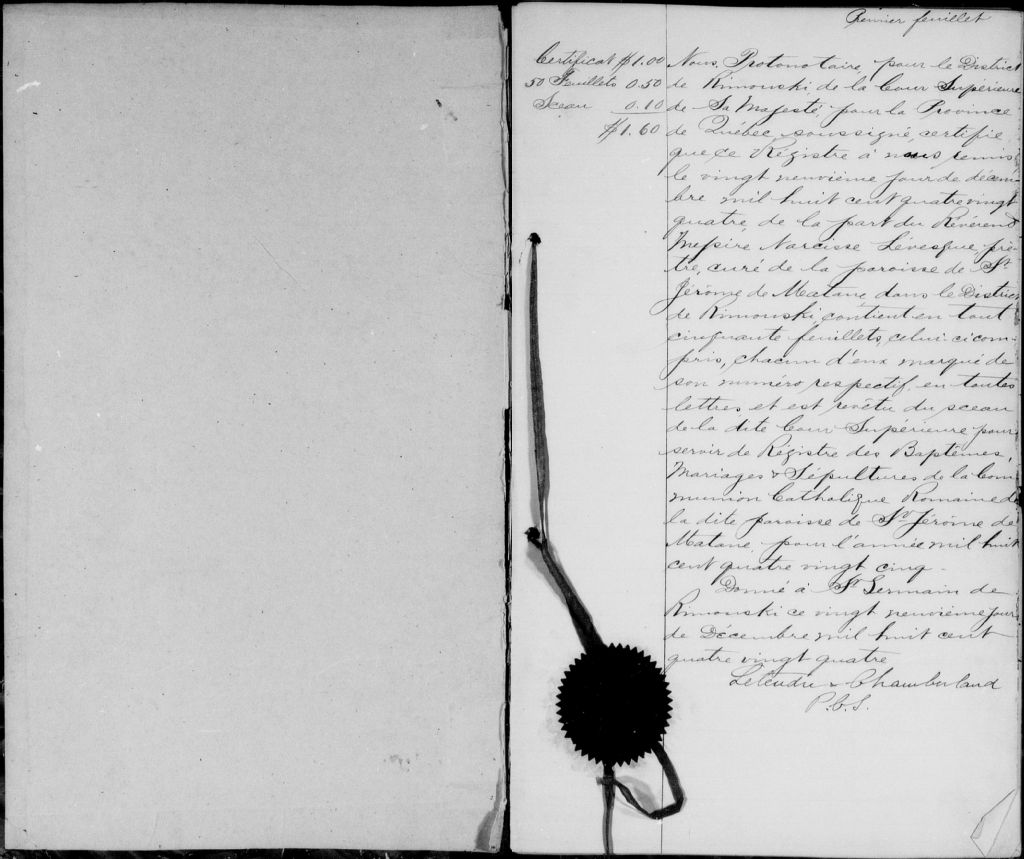 Premier feuillet
Certificat $1.00
50 Feuillets 0.50
Sceau 0.10
$1.60
Nous, Protonotaire, pour le District
de Rimouski, de la Cour Supérieure
de Sa Majesté, pour la Province
de Québec, soussigné, certifie
que ce Régistre à nous remis
le vingt neuvième jour de décem-
bre mil huit cent quatre vingt
quatre, de la part du Révérend
Messire Narcisse Lévesque, prê-
tre, curé de la paroisse de St
Jérôme de Matane, dans le District
de Rimouski, contient en tout
cinquante feuillets, celui-ci com-
pris, chacun d'eux marqué de
son numéro respectif, en toutes
lettres et est revêtu du sceau
de la dite Cour Supérieure pour
servir de Régistre des Baptêmes,
Mariages & Sépultures de la Com
munion Catholique Romaine de
la dite paroisse de St Jérôme de
Matane, pour l'année mil huit
cent quatre vingt cinq.
Donné à St Germain de
Rimouski ce vingt neuvième jour
de Décembre mil huit cent
quatre vingt quatre
Letendre & Chamberland
P.C.S.